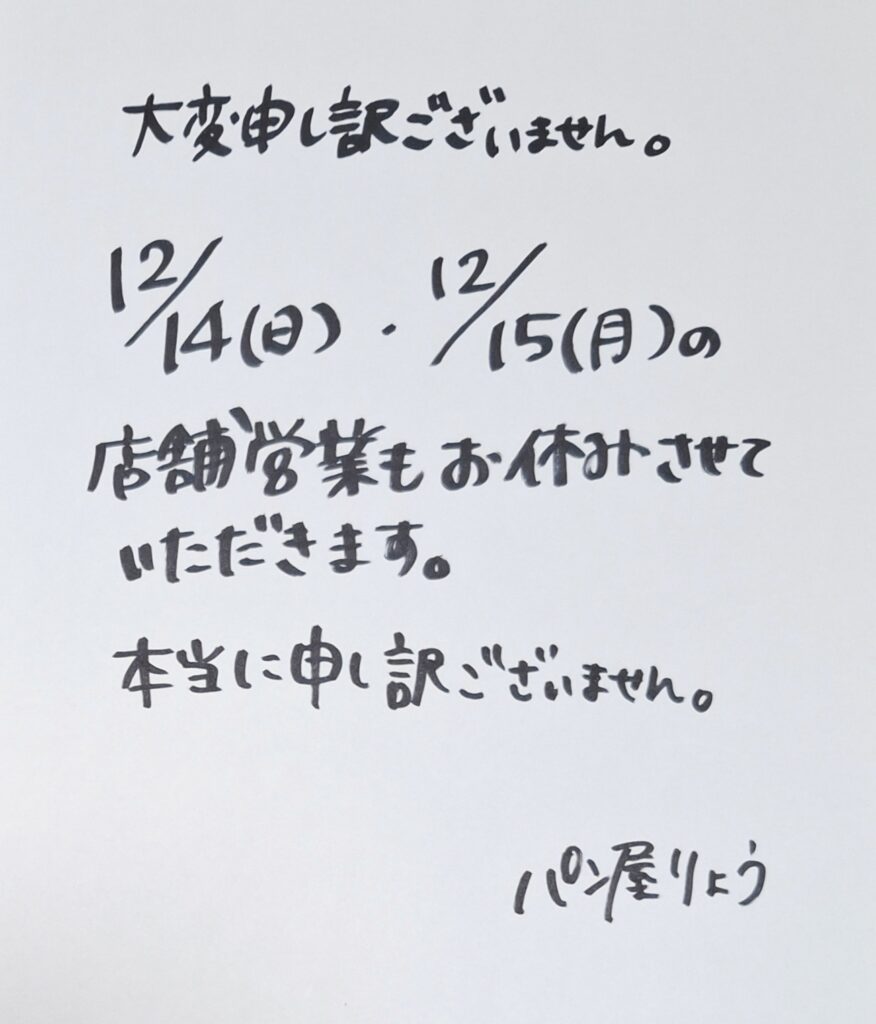 大変申し訳ございません。
12/14(日)・12/15(月)の
店舗営業もお休みさせて
いただきます。
本当に申し訳ございません。
パン屋りょう